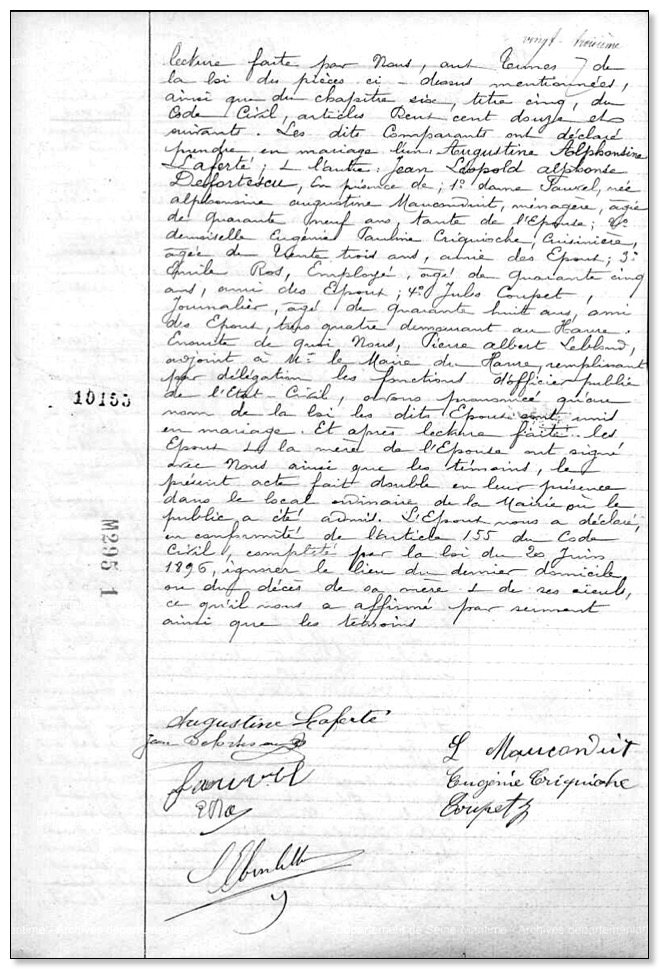 vingt-troisième
lecture faite par Nous, aux termes de
la loi des pièces ci-dessus mentionnées,
ainsi que du chapitre six, titre cinq, du
Code Civil, articles Deux cent douze et
suivants. Les dits Comparants ont déclaré
prendre en mariage l'un: Augustine Alphonsine
Laferté; & l'autre: Jean Léopold alphonse
Delfortescu, En présence de; 1° dame Fauvel, née
alphonsine augustine Mauconduit, ménagère, agée
de quarante neuf ans, tante de l'Epouse; 2°
demoiselle Eugénie Pauline Criquioche, Cuisinière,
agée de trente trois ans, amie des Epoux; 3°
Emile Ros, Employé, agé de quarante cinq
ans, ami des Epoux; 4° Jules Coupet,
Journalier, agé de quarante huit ans, ami
des Epoux, tous quatre demeurant au Havre.
Ensuite de quoi Nous, Pierre albert Leblond,
adjoint à Mr. le Maire du Havre, remplissant
par délégation les fonctions d'officier public
de l'Etat-Civil, avons prononcé qu'au
nom de la loi les dits Epoux sont unis
en mariage. Et après lecture faite les
Epoux & la mère de l'Epouse ont signé
avec Nous ainsi que les témoins, le
présent acte fait double en leur présence
dans le local ordinaire de la Mairie où le
public a été admis. L'Epoux nous a déclaré,
en conformité de l'Article 155 du Code
Civil, complété par la loi du 20 Juin
1896, ignorer le lieu du dernier domicile
ou du décès de sa mère & de ses aïeuls,
ce qu'il nous a affirmé par serment
ainsi que les témoins
10153
M295 1
Augustine Laferté
Jean
L Mauconduit
Fauvel
Eugénie Criquioche
E Ros
Coupet
Département de Seine-Maritime - Archives départementales